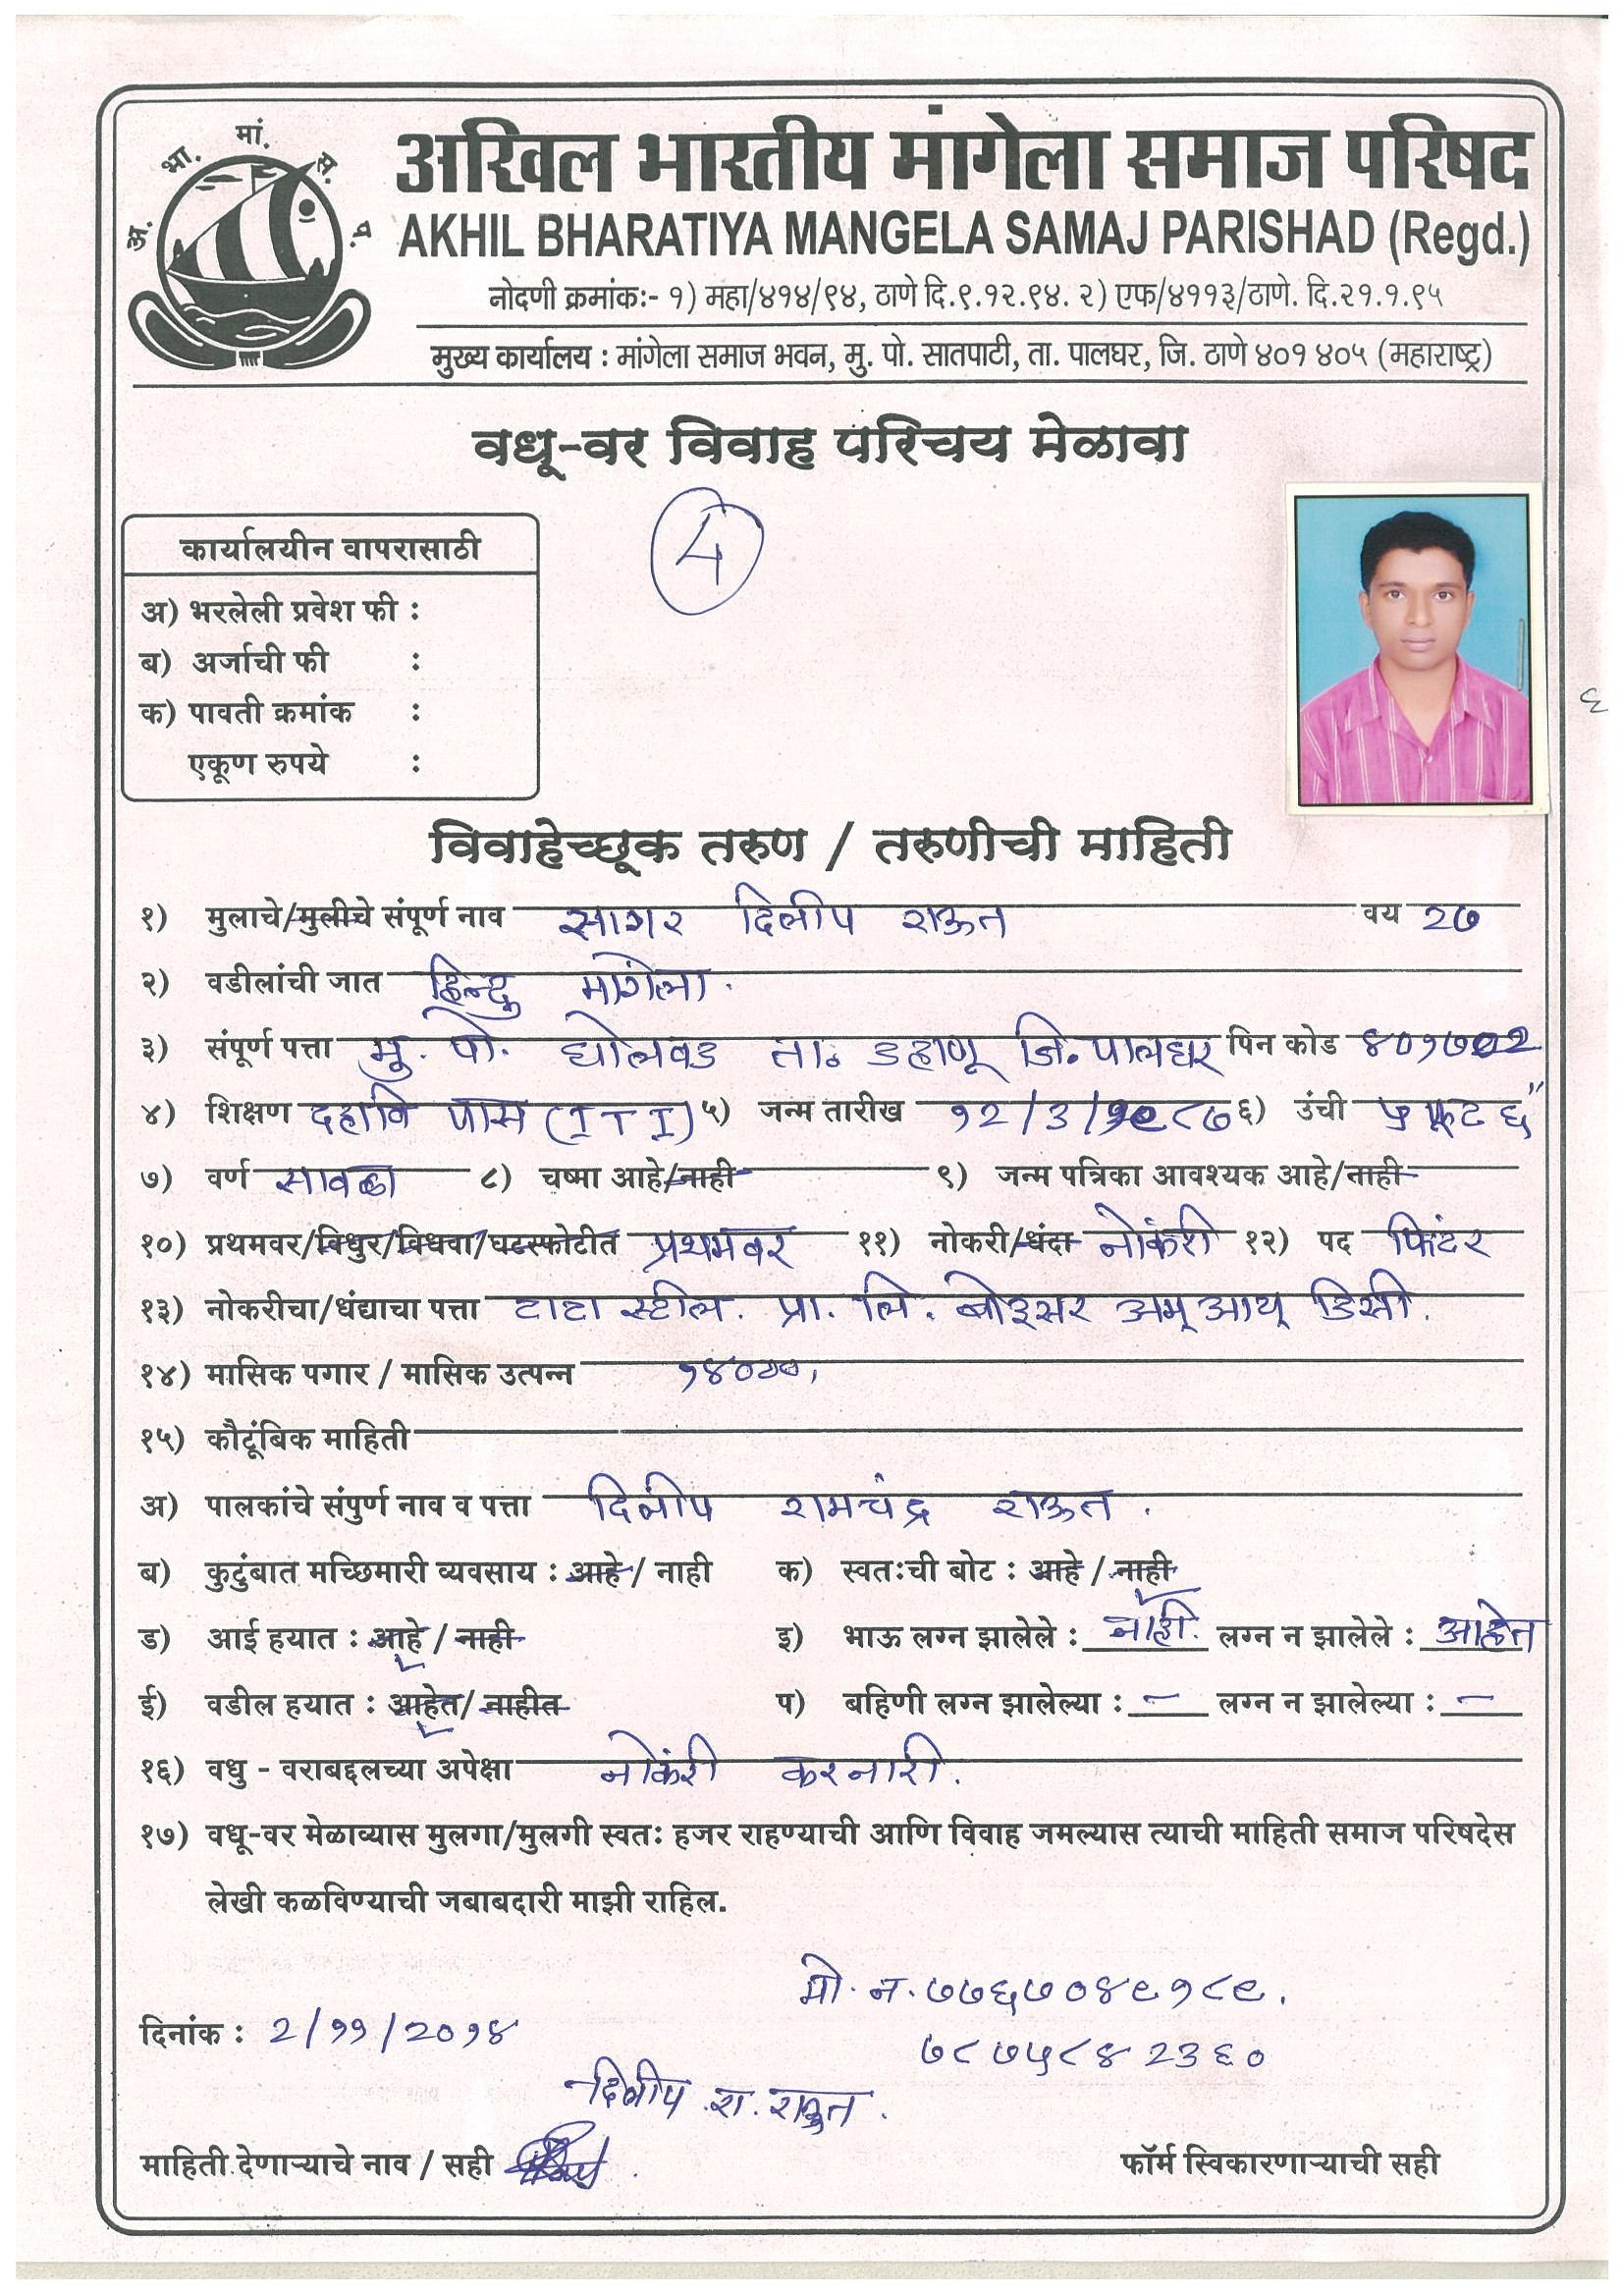 अ. भा. मां. स. प.
अखिल भारतीय मांगेला समाज परिषद
AKHIL BHARATIYA MANGELA SAMAJ PARISHAD (Regd.)
नोदणी क्रमांकः- १) महा/४१४/९४, ठाणे दि.९.१२.९४. २) एफ/४११३/ठाणे. दि.२१.१.९५
मुख्य कार्यालय : मांगेला समाज भवन, मु. पो. सातपाटी, ता. पालघर, जि. ठाणे ४०१ ४०५ (महाराष्ट्र)
वधू-वर विवाह परिचय मेळावा
4
कार्यालयीन वापरासाठी
अ) भरलेली प्रवेश फी :
ब) अर्जाची फी :
क) पावती क्रमांक :
एकूण रुपये :
६
विवाहेच्छूक तरुण / तरुणीची माहिती
१) मुलाचे/मुलीचे संपूर्ण नाव सागर दिलीप राऊत वय २७
२) वडीलांची जात हिन्दु मागेला.
३) संपूर्ण पत्ता मु. पो. घोलवड ता. डहाणू जि. पालघर पिन कोड ४०१७०२
४) शिक्षण दहावि पास (I T I) ५) जन्म तारीख १२/३/१९८७ ६) उंची ५ फूट ६"
७) वर्ण सावळा ८) चष्मा आहे/नाही ९) जन्म पत्रिका आवश्यक आहे/नाही
१०) प्रथमवर/विधुर/विधवा/घटस्फोटीत प्रथमवर ११) नोकरी/धंदा नोकंरी १२) पद फिटंर
१३) नोकरीचा/धंद्याचा पत्ता टाटा स्टील. प्रा. लि. बोइसर अम् आय् डिसी.
१४) मासिक पगार / मासिक उत्पन्न १४०००,
१५) कौटूंबिक माहिती
अ) पालकांचे संपुर्ण नाव व पत्ता दिलीप रामचंद्र राऊत.
ब) कुटुंबात मच्छिमारी व्यवसाय : आहे / नाही क) स्वतःची बोट : आहे / नाही
ड) आई हयात : आहे / नाही इ) भाऊ लग्न झालेले : नाही. लग्न न झालेले : आहेत
ई) वडील हयात : आहेत/ नाहीत प) बहिणी लग्न झालेल्या : — लग्न न झालेल्या : —
१६) वधु - वराबद्दलच्या अपेक्षा नोकंरी करनारी.
१७) वधू-वर मेळाव्यास मुलगा/मुलगी स्वतः हजर राहण्याची आणि विवाह जमल्यास त्याची माहिती समाज परिषदेस
लेखी कळविण्याची जबाबदारी माझी राहिल.
मो. न. ७७६७०४९१८९.
दिनांक : २/११/२०१४
७८७५८४२३६०
दिलीप .रा. राऊत.
माहिती देणाऱ्याचे नाव / सही फॉर्म स्विकारणाऱ्याची सही